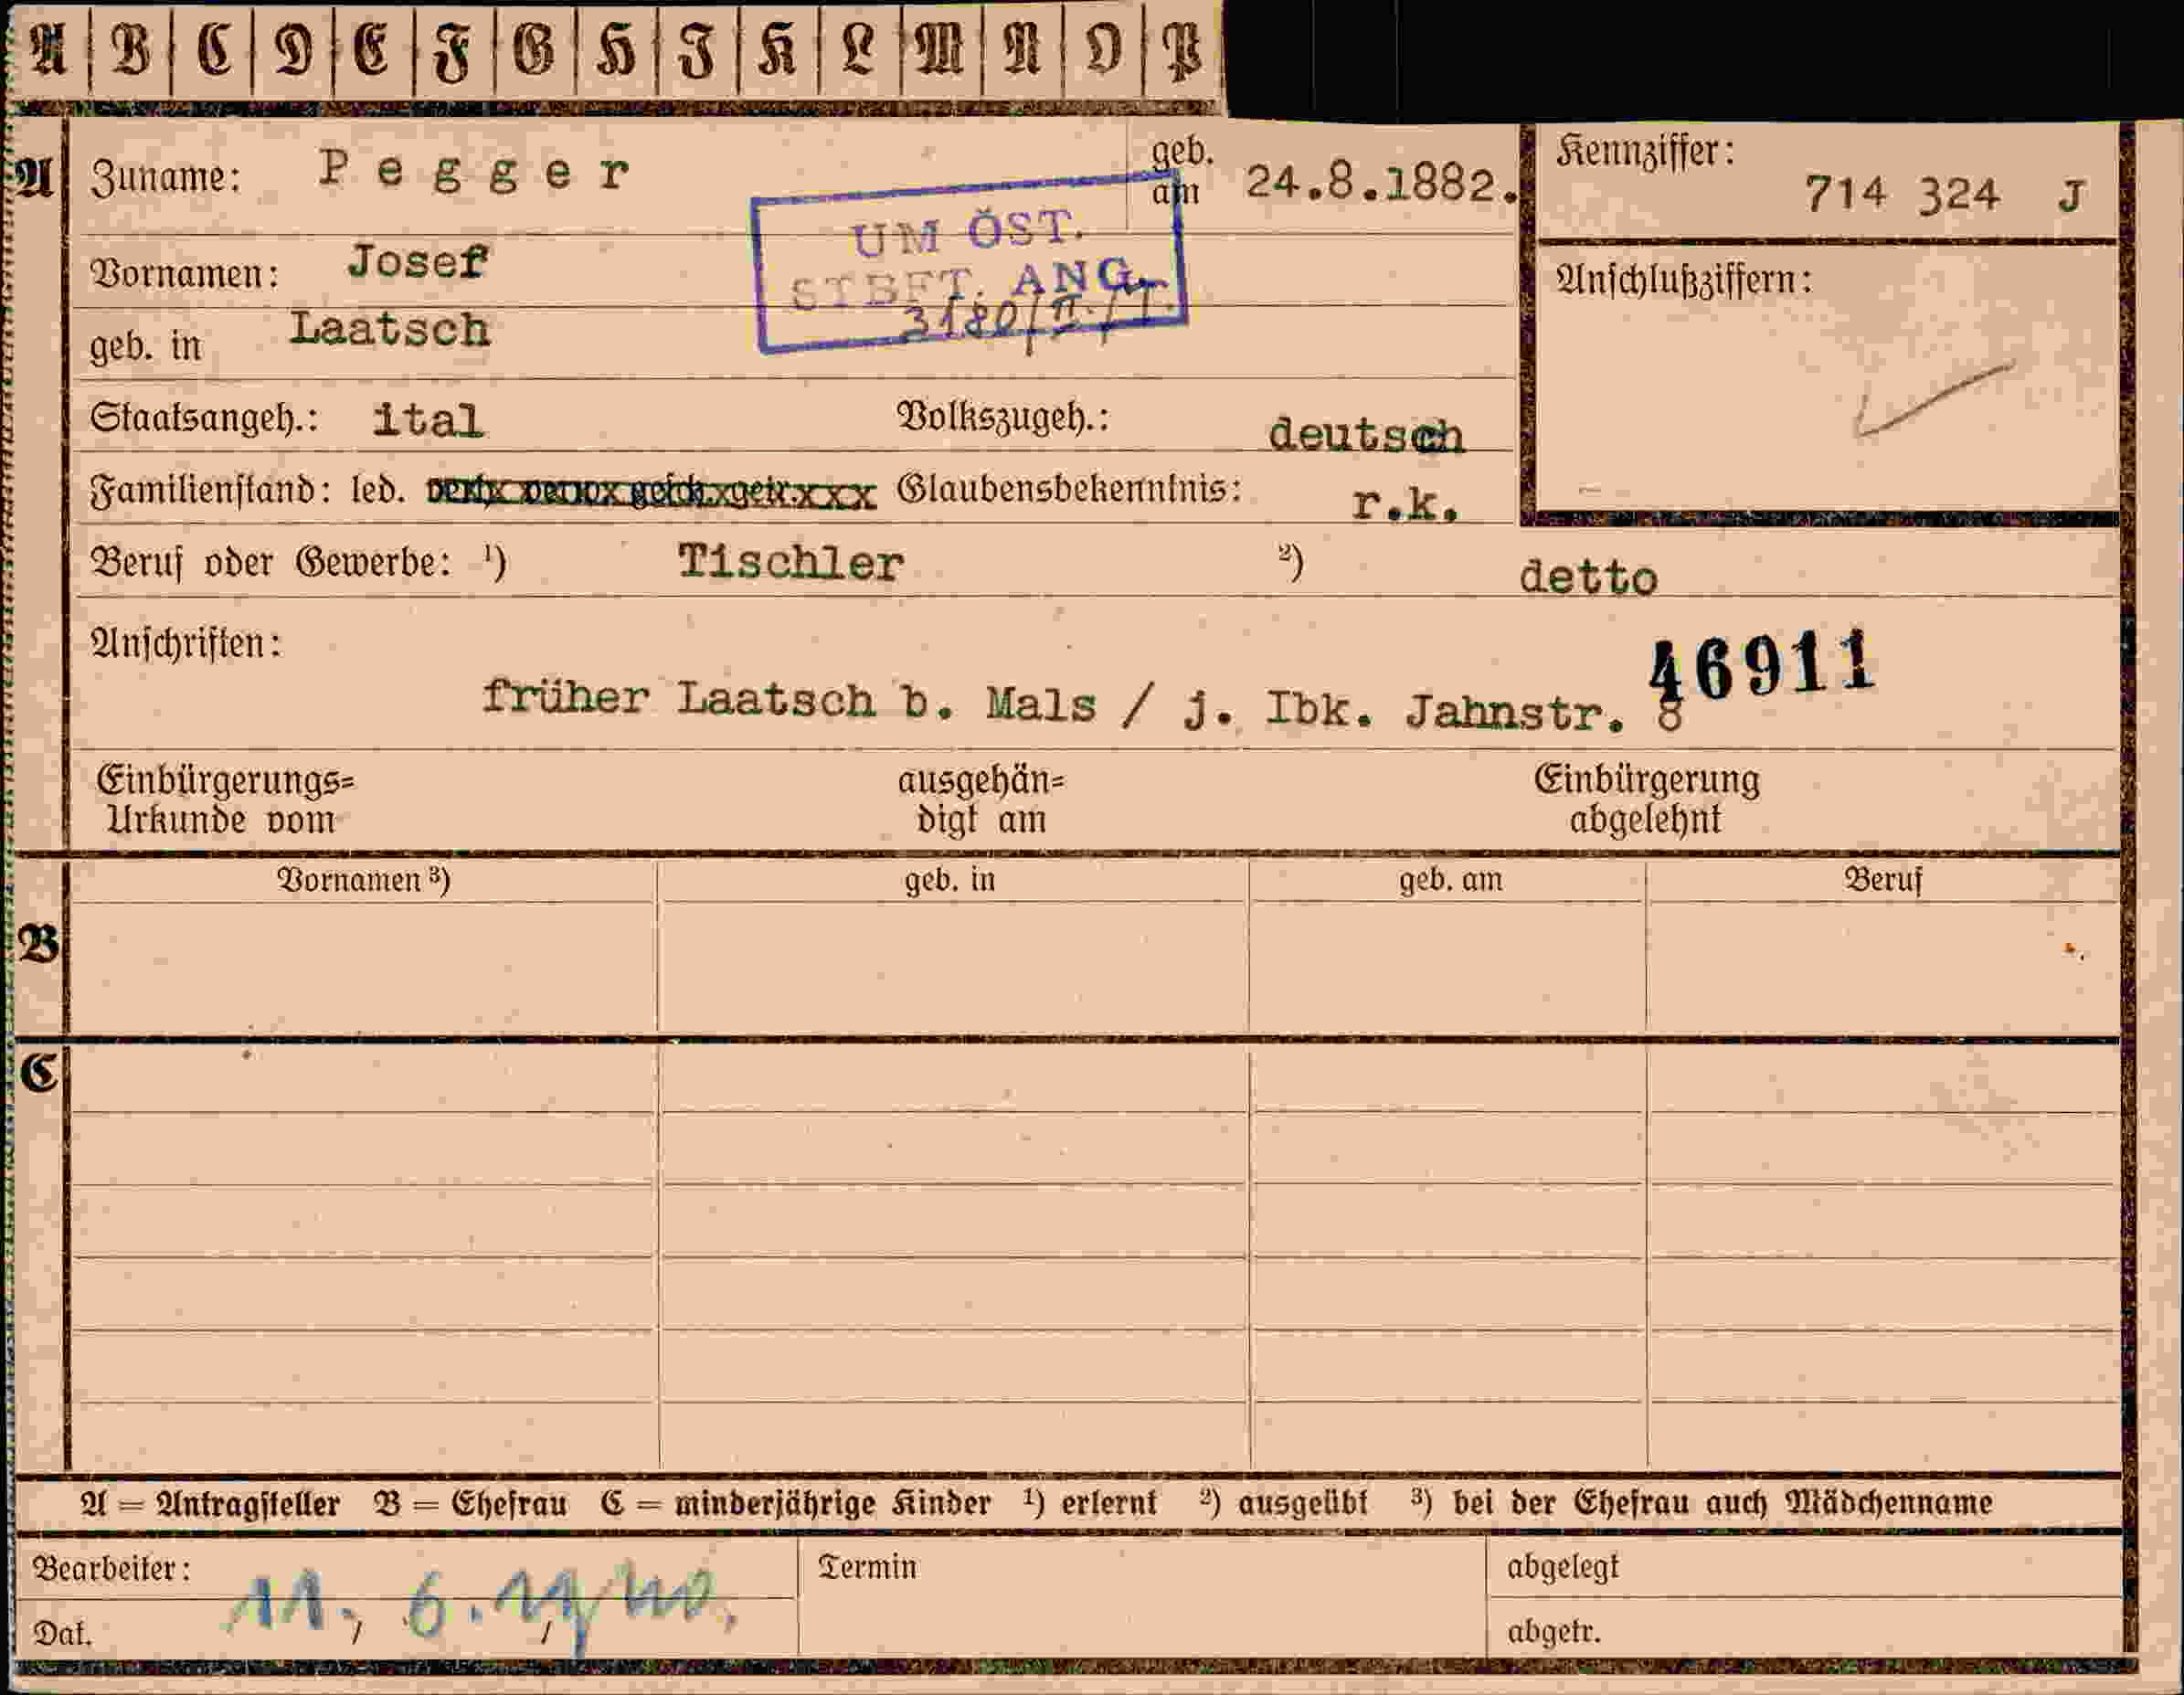 A B C D E F G H I K L M N O P
A Zuname: Pegger geb. am 24.8.1882. Kennziffer: 714 324 J
UM ÖST.
STBFT. ANG.
3180/II./I.
Vornamen: Josef Anschlußziffern:
geb. in Laatsch
Staatsangeh.: ital Volkszugeh.: deutsch
Familienstand: led. Glaubensbekenntnis: r.k.
Beruf oder Gewerbe: ¹) Tischler ²) detto
Anschriften: 46911
früher Laatsch b. Mals / j. Ibk. Jahnstr. 8
Einbürgerungs= ausgehän= Einbürgerung
Urkunde vom digt am abgelehnt
Vornamen ³) geb. in geb. am Beruf
B
C
A = Antragsteller B = Ehefrau C = minderjährige Kinder ¹) erlernt ²) ausgeübt ³) bei der Ehefrau auch Mädchenname
Bearbeiter: Termin abgelegt
Dat. 11. 6. abgetr.